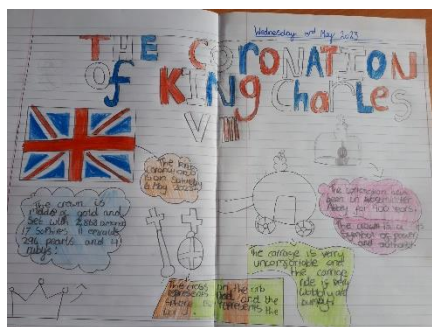 Wednesday 3rd May 2023
THE CORONATION
Of KING Charles
The Kings
Coronation
is on Saturday
6 May 2023
The crown is
made of gold and
set with 2,868 diamonds
17 Saffires 11 emeralds
296 pearls and 4
rubys!
The coronation have
been in Westminster
Abbey for 900 years!
The crown is a
symbol of power
and
The carriage is very
uncomfortable and
the carriage
ride is very
wobbly and
bumpy!
The cross on the orb
represents
and the
the